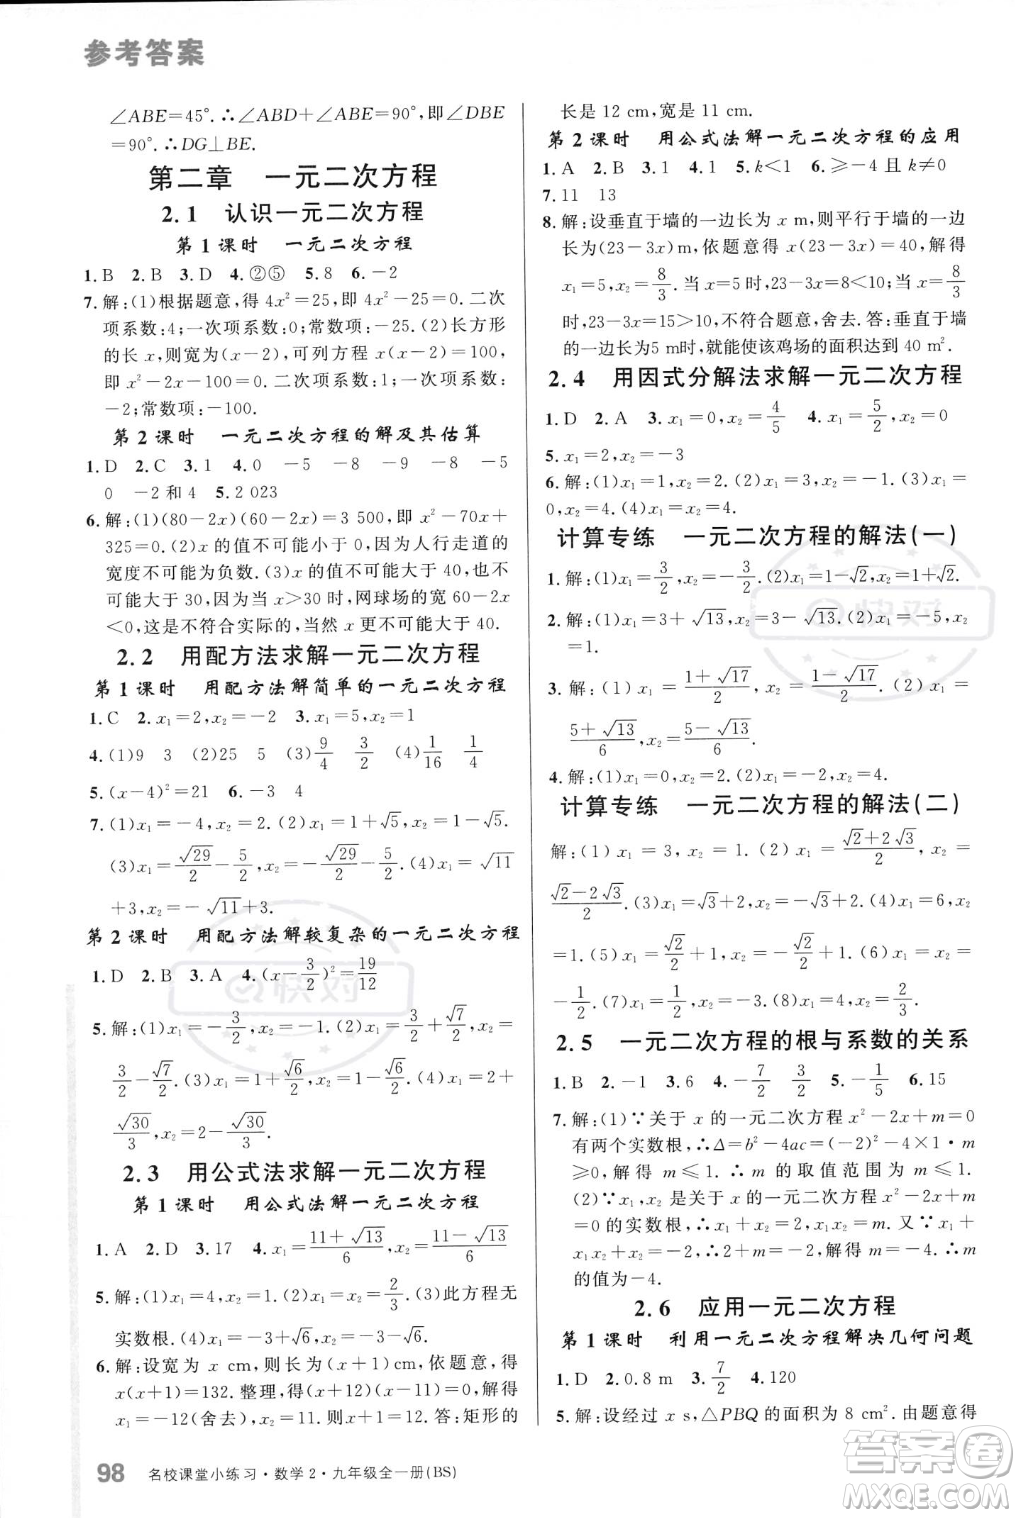 参考答案
∠ABE=45°.∴∠ABD+∠ABE=90°,即∠DBE
=90°.∴DG⊥BE.
第二章 一元二次方程
2.1 认识一元二次方程
第1课时 一元二次方程
1.B 2.B 3.D 4.②⑤ 5.8 6.-2
7.解:(1)根据题意,得4x²=25,即4x²-25=0.二次
项系数:4;一次项系数:0;常数项:-25.(2)长方形
的长x,则宽为(x-2),可列方程x(x-2)=100,
即x²-2x-100=0.二次项系数:1;一次项系数:
-2;常数项:-100.
第2课时 一元二次方程的解及其估算
1.D 2.C 3.1 4.0 -5 -8 -9 -8 -5
0 -2和4 5.2 023
6.解:(1)(80-2x)(60-2x)=3 500,即x²-70x+
325=0.(2)x的值不可能小于0,因为人行走道的
宽度不可能为负数.(3)x的值不可能大于40,也不
可能大于30,因为当x>30时,网球场的宽60-2x
<0,这是不符合实际的,当然x更不可能大于40.
2.2 用配方法求解一元二次方程
第1课时 用配方法解简单的一元二次方程
1.C 2.x₁=2,x₂=-2 3.x₁=5,x₂=1
4.(1)9 3 (2)25 5 (3)9/4 3/2 (4)1/16 1/4
5.(x-4)²=21 6.-3 4
7.(1)x₁=-4,x₂=2.(2)x₁=1+√5,x₂=1-√5.
(3)x₁=√29/2-5/2,x₂=-√29/2-5/2.(4)x₁=√11
+3,x₂=-√11+3.
第2课时 用配方法解较复杂的一元二次方程
1.D 2.B 3.A 4.(x-3/2)²=19/12
5.解:(1)x₁=-3/2,x₂=1.(2)x₁=3/2+√7/2,x₂=
3/2-√7/2.(3)x₁=1+√6,x₂=1-√6.(4)x₁=2+
√30/3,x₂=2-√30/3.
2.3 用公式法求解一元二次方程
第1课时 用公式法解一元二次方程
1.A 2.D 3.17 4.x₁=(11+√13)/6,x₂=(11-√13)/6
5.解:(1)x₁=4,x₂=1.(2)x₁=x₂=2/3.(3)此方程无
实数根.(4)x₁=-3+√6,x₂=-3-√6.
6.解:设宽为x cm,则长为(x+1)cm,依题意,得
x(x+1)=132.整理,得(x+12)(x-11)=0.解得
x₁=-12(舍去),x₂=11.则x+1=12.答:矩形的
长是12 cm,宽是11 cm.
第2课时 用公式法解一元二次方程的应用
1.A 2.B 3.A 4.0 5.k<1 6.≥-4且k≠0
7.11 13
8.解:设垂直于墙的一边长为x m,则平行于墙的一边
长为(23-3x)m,依题意,得x(23-3x)=40,解得
x₁=5,x₂=8/3.当x=5时,23-3x=8<10;当x=8/3
时,23-3x=15>10,不符合题意,舍去.答:垂直于墙
的一边长为5 m时,就能使该鸡场的面积达到40 m².
2.4 用因式分解法求解一元二次方程
1.D 2.A 3.x₁=0,x₂=4/5 4.x₁=5/2,x₂=0
5.x₁=2,x₂=-3
6.解:(1)x₁=2,x₂=4.(2)x₁=x₂=2.(3)x₁=
0,x₂=4.(4)x₁=2,x₂=4.
计算专练 一元二次方程的解法(一)
1.解:(1)x₁=3/2,x₂=-3/2.(2)x₁=1-√2,x₂=1+√2.
2.解:(1)x₁=3+√13,x₂=3-√13.(2)x₁=-5,x₂
=1.
3.解:(1)x₁=(1+√17)/2,x₂=(1-√17)/2.(2)x₁=
(5+√13)/6,x₂=(5-√13)/6.
4.解:(1)x₁=0,x₂=2.(2)x₁=2,x₂=4.
计算专练 一元二次方程的解法(二)
解:(1)x₁=3,x₂=1.(2)x₁=(√2+2√3)/2,x₂=
(√2-2√3)/2.(3)x₁=-1,x₂=6.(4)x₁=9,x₂
=1.(5)x₁=√2/2+1,x₂=-√2/2+1.(6)x₁=x₂=
-1/2.(7)x₁=1,x₂=-3.(8)x₁=4,x₂=2/3.
2.5 一元二次方程的根与系数的关系
1.B 2.-1 3.6 4.-7/2 3/2 5.-1/5 6.15
7.解:(1)∵关于x的一元二次方程x²-2x+m=0
有两个实数根,∴Δ=b²-4ac=(-2)²-4×1·m
≥0,解得m≤1.∴m的取值范围为m≤1.
(2)∵x₁,x₂是关于x的一元二次方程x²-2x+m
=0的实数根,∴x₁+x₂=2,x₁x₂=m.又∵x₁x₂+
x₁+x₂+m²=14,∴2+m+m²=14,解得m=-4
或m=3.由(1)知m≤1,∴m=3舍去.∴m
的值为-4.
2.6 应用一元二次方程
第1课时 利用一元二次方程解决几何问题
1.D 2.0.8 m 3.7/2 4.120
5.解:设经过x s,△PBQ的面积为8 cm².由题意得
98 名校课堂小练习·数学2·九年级全一册(BS)
快对
快对
MXQE.COM